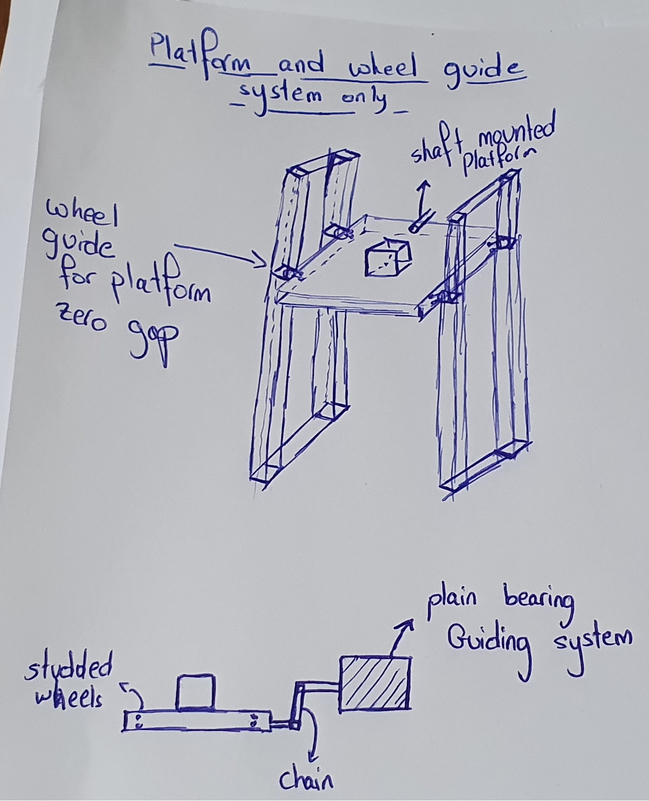 Platform and wheel guide
system only
shaft mounted
platform
wheel
guide
for platform
zero gap
plain bearing
Guiding system
studded
wheels
chain